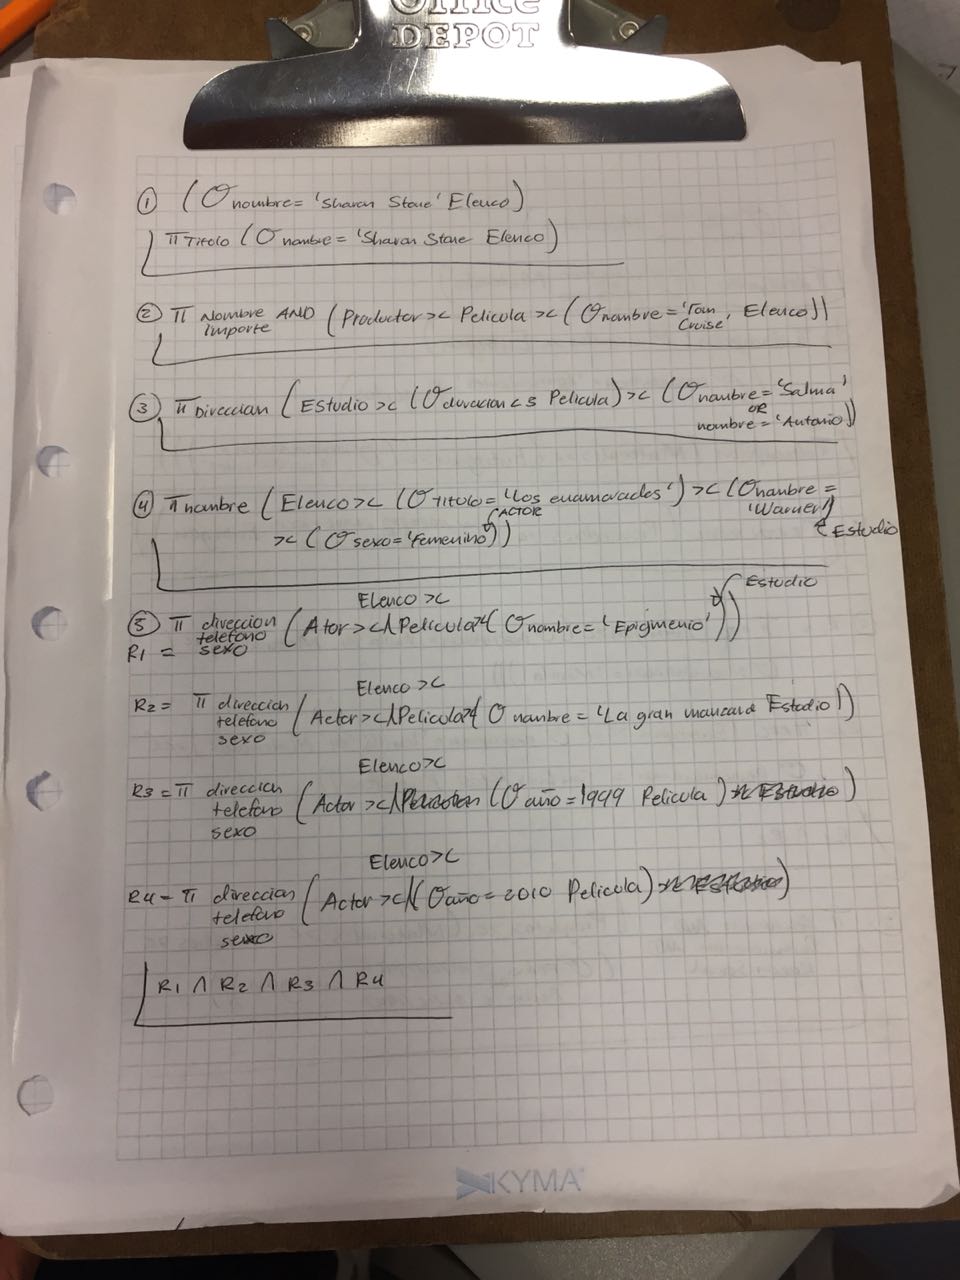 Office
DEPOT
① (σ nombre = 'Sharon Stone' Elenco)
π Titulo (σ nombre = 'Sharon Stone Elenco)
② π Nombre AND Importe (Productor >< Pelicula >< (σ nombre = 'Tom Cruise', Elenco))
③ π Direccion (Estudio >< (σ duracion < 5 Pelicula) >< (σ nombre = 'Salma'
OR
nombre = 'Antonio))
④ π nombre (Elenco >< (σ Titulo = 'Los enamorados') >< (σ nombre = 'Warner')
ACTOR
Estudio
>< (σ sexo = 'Femenino'))
Estudio
Elenco ><
⑤ π direccion telefono sexo (Ator >< Pelicula >< (σ nombre = 'Epigmenio'))
R1 =
Elenco ><
R2 = π direccion telefono sexo (Actor >< Pelicula >< (σ nombre = 'La gran manzana Estudio))
Elenco ><
R3 = π direccion telefono sexo (Actor >< (σ año = 1999 Pelicula))
Elenco ><
R4 = π direccion telefono sexo (Actor >< (σ año = 2010 Pelicula))
R1 ∩ R2 ∩ R3 ∩ R4
KYMA